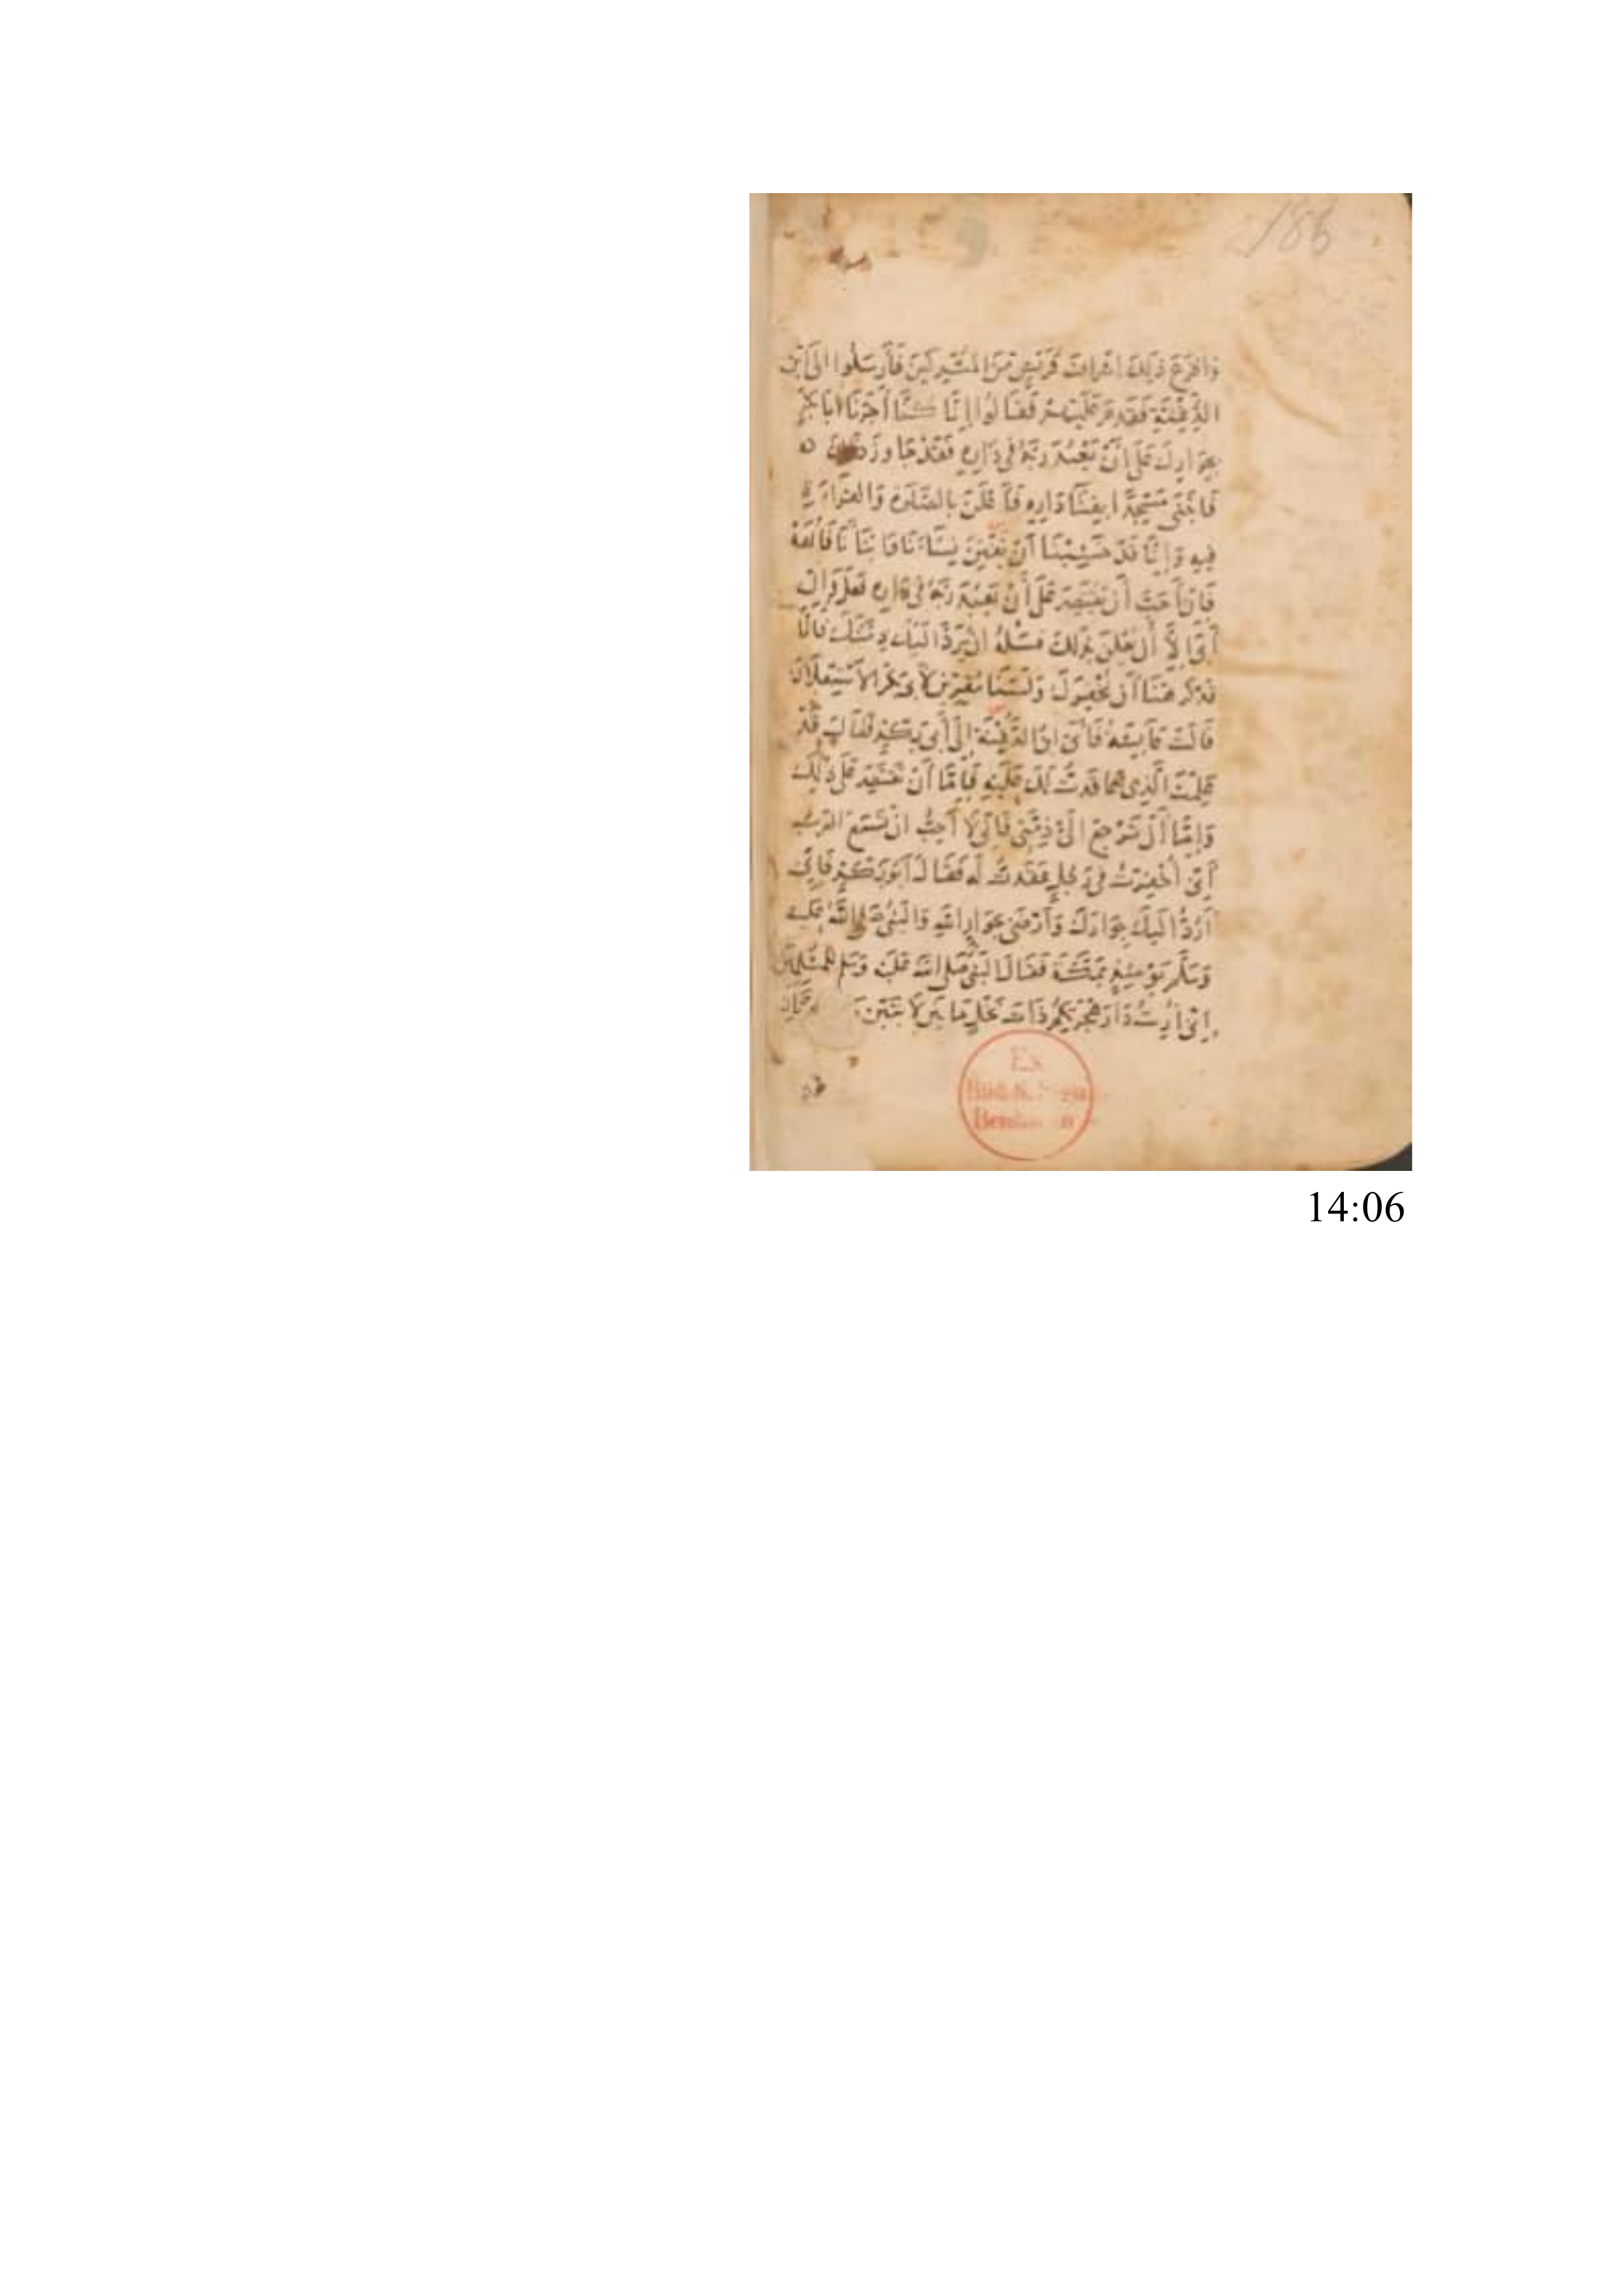 186
وَأفزَعَ ذَلِكَ اشرافَ قُرَيشٍ مِنَ المُشرِكينَ فَأَرسَلُوا الَى ابْنِ
الدَّغِنَةِ فَقَدِمَ عَلَيْهِمْ فَقَالُوا إِنَّا كُنَّا أَجَرْنَا ابَا بَكْرٍ
بِجِوَارِكَ عَلَى انْ يَعْبُدَ رَبَّهُ فى دَارِهِ فَقَدْ جَاوَزَ ذلك
فَابْتَنَى مَسْجِدًا بِفِنَاء دَارِهِ فَأَعْلَنَ بِالصَّلَوةِ وَالقِرَاءَةِ
فِيهِ وَإِنَّا قَدْ خَشِينَا أَنْ يَفْتِنَ نِسَاءَنَا وَابْنَاءَنَا فَانْهَهُ
فَانْ أَحَبَّ أَنْ يَقْتَصِرَ عَلَى أَنْ يَعْبُدَ رَبَّهُ فِى دَارِهِ فَعَلَ وَانْ
أَبَى الَّا أَنْ يُعْلِنَ بِذَلِكَ فَسَلْهُ انْ يَرُدَّ الَيْكَ ذِمَّتَكَ فَانَّا
قَدْ كَرِهْنَا أَنْ نُخْفِرَكَ وَلَسْنَا مُقِرِّينَ لِأَبِى بَكْرٍ الاسْتِعْلَانَ
قَالَتْ عَايِشَةُ فَأَتَى ابْنُ الدَّغِنَةِ إِلَى أَبِى بَكْرٍ فَقَالَ قَدْ
عَلِمْتَ الَّذِى عَاقَدتُّ لَكَ عَلَيْهِ فَإِمَّا أَنْ تَقْتَصِرَ عَلَى ذَلِكَ
وَإِمَّا أَنْ تَرْجِعَ الَىَّ ذِمَّتِى فَانِّى لَا أُحِبُّ انْ تَسْمَعَ العَرَبُ
أَنِّى أُخْفِرْتُ فِى رَجُلٍ عَقَدتُّ لَهُ فَقَالَ أَبُو بَكْرٍ فَإِنِّى
أَرُدُّ الَيْكَ جِوَارَكَ وَأَرْضَى بِجِوَارِ اللهِ وَالنَّبِىُّ صَلَّى اللهُ عَلَيْهِ
وَسَلَّمَ يَوْمَئِذٍ بِمَكَّةَ فَقَالَ النَّبِىُّ صَلَّى اللهُ عَلَيْهِ وَسَلَّمَ لِلْمُسْلِمِينَ
إِنِّى أُرِيتُ دَارَ هِجْرَتِكُمْ ذَاتَ نَخْلٍ مَا بَيْنَ لَابَتَيْنِ
Ex
14:06